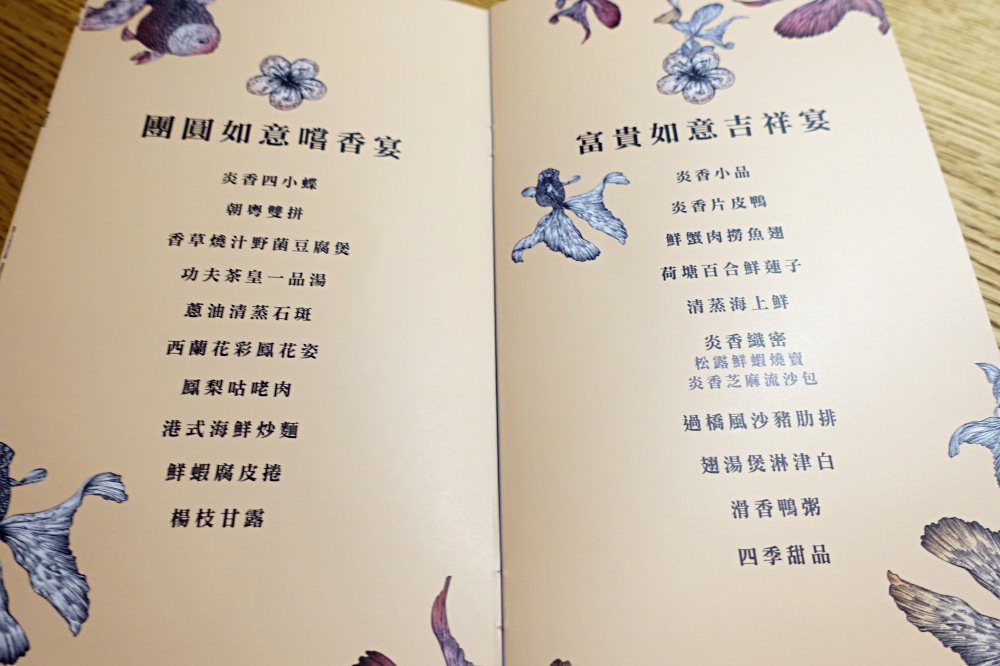 團圓如意嚐香宴
炎香四小蝶
朝粵雙拼
香草燒汁野菌豆腐煲
功夫茶皇一品湯
蔥油清蒸石斑
西蘭花彩鳳花姿
鳳梨咕咾肉
港式海鮮炒麵
鮮蝦腐皮捲
楊枝甘露
富貴如意吉祥宴
炎香小品
炎香片皮鴨
鮮蟹肉撈魚翅
荷塘百合鮮蓮子
清蒸海上鮮
炎香纖密
松露鮮蝦燒賣
炎香芝麻流沙包
過橋風沙豬肋排
翅湯煲淋津白
滑香鴨粥
四季甜品